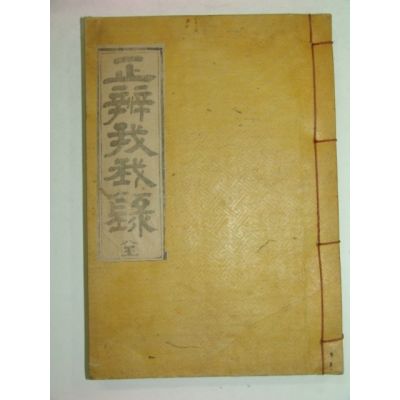 正辨我我錄 全